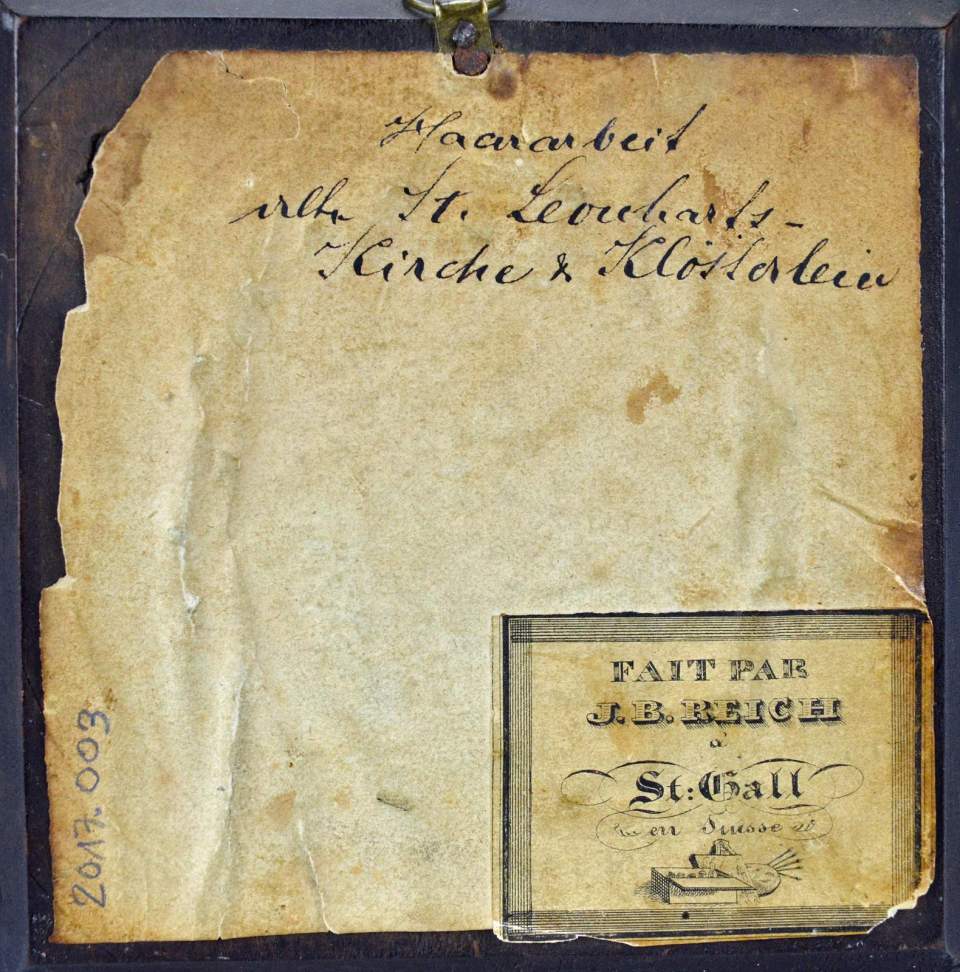 Haararbeit
alte St. Leonharts-
Kirche & Klösterlein
FAIT PAR
J. B. REICH
à
St: Gall
en Suisse
2017. 003